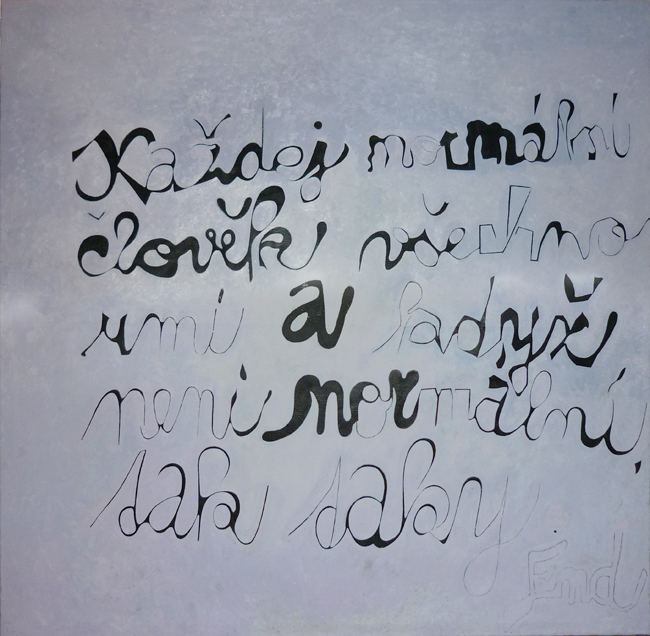 Každej normální
člověk všechno
umí a kadyž
není normální,
dak daky
Emd